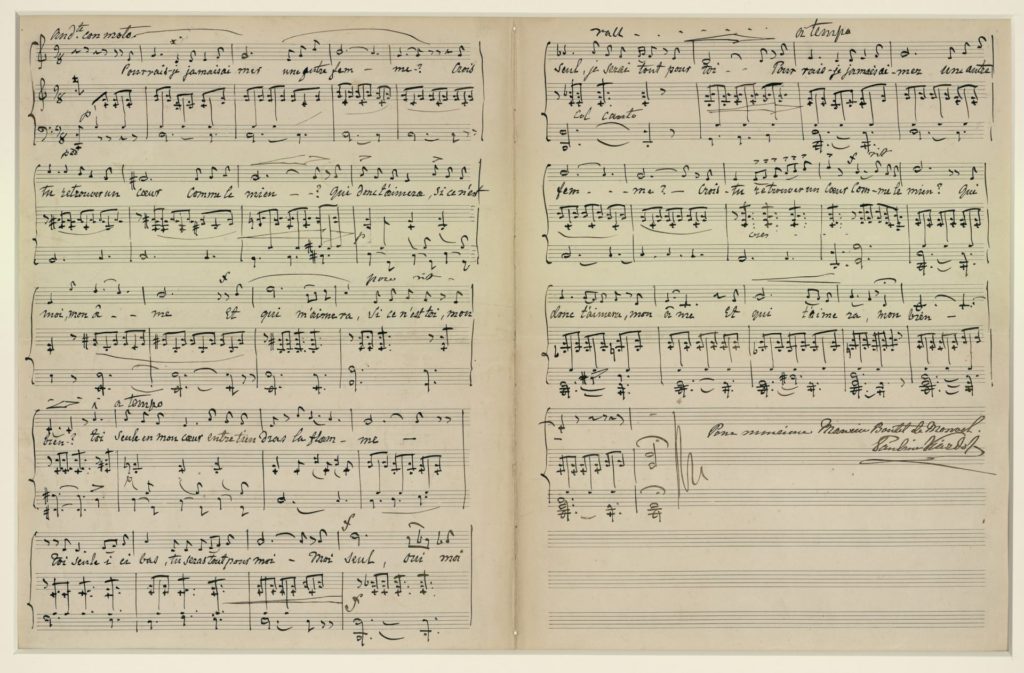 andte. con moto.
Pourrais-je jamais ai mer une autre fem - me? Crois
tu retrouver un cœur comme le mien - - ? Qui donc t'aimera, si ce n'est
moi, mon â - - me Et qui m'aimera, si ce n'est toi, mon
poco rit -
a tempo
bien? toi seule en mon cœur entre tien dras la flam - me -
toi seule i ci bas, tu seras tout pour moi - Moi seul, oui moi
rall - . - . - . a tempo
seul, je serai tout pour toi - - Pour rais-je jamais ai- mer une autre
col canto
rit
fem - - - me? - Crois- tu retrouver un cœur com-me le mien? Qui
cres - - -
donc t'aimera, mon â me Et qui t'aime ra, mon bien -
Pour monsieur Maurice Boutet de Monvel.
Pauline Viardot